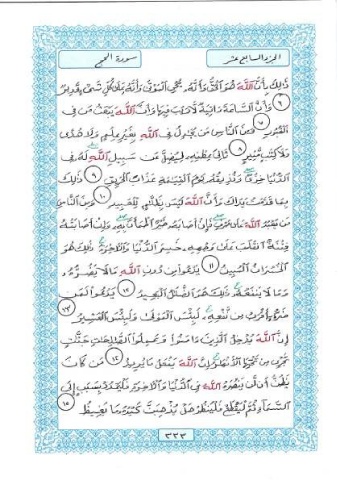 الجزء السابع عشر
سورة الحج
ذَٰلِكَ بِأَنَّ اللَّهَ هُوَ الْحَقُّ وَأَنَّهُ يُحْيِي الْمَوْتَىٰ وَأَنَّهُ عَلَىٰ كُلِّ شَيْءٍ قَدِيرٌ
٦ وَأَنَّ السَّاعَةَ آتِيَةٌ لَّا رَيْبَ فِيهَا وَأَنَّ اللَّهَ يَبْعَثُ مَن فِي
الْقُبُورِ ٧ وَمِنَ النَّاسِ مَن يُجَادِلُ فِي اللَّهِ بِغَيْرِ عِلْمٍ وَلَا هُدًى
وَلَا كِتَابٍ مُّنِيرٍ ٨ ثَانِيَ عِطْفِهِ لِيُضِلَّ عَن سَبِيلِ اللَّهِ لَهُ فِي
الدُّنْيَا خِزْيٌ وَنُذِيقُهُ يَوْمَ الْقِيَامَةِ عَذَابَ الْحَرِيقِ ٩ ذَٰلِكَ
بِمَا قَدَّمَتْ يَدَاكَ وَأَنَّ اللَّهَ لَيْسَ بِظَلَّامٍ لِّلْعَبِيدِ ١٠ وَمِنَ النَّاسِ
مَن يَعْبُدُ اللَّهَ عَلَىٰ حَرْفٍ فَإِنْ أَصَابَهُ خَيْرٌ اطْمَأَنَّ بِهِ وَإِنْ أَصَابَتْهُ
فِتْنَةٌ انقَلَبَ عَلَىٰ وَجْهِهِ خَسِرَ الدُّنْيَا وَالْآخِرَةَ ذَٰلِكَ هُوَ
الْخُسْرَانُ الْمُبِينُ ١١ يَدْعُو مِن دُونِ اللَّهِ مَا لَا يَضُرُّهُ
وَمَا لَا يَنفَعُهُ ذَٰلِكَ هُوَ الضَّلَالُ الْبَعِيدُ ١٢ يَدْعُو لَمَن
ضَرُّهُ أَقْرَبُ مِن نَّفْعِهِ لَبِئْسَ الْمَوْلَىٰ وَلَبِئْسَ الْعَشِيرُ ١٣
إِنَّ اللَّهَ يُدْخِلُ الَّذِينَ آمَنُوا وَعَمِلُوا الصَّالِحَاتِ جَنَّاتٍ
تَجْرِي مِن تَحْتِهَا الْأَنْهَارُ إِنَّ اللَّهَ يَفْعَلُ مَا يُرِيدُ ١٤ مَن كَانَ
يَظُنُّ أَن لَّن يَنصُرَهُ اللَّهُ فِي الدُّنْيَا وَالْآخِرَةِ فَلْيَمْدُدْ بِسَبَبٍ إِلَى
السَّمَاءِ ثُمَّ لْيَقْطَعْ فَلْيَنظُرْ هَلْ يُذْهِبَنَّ كَيْدُهُ مَا يَغِيظُ ١٥
٣٣٣